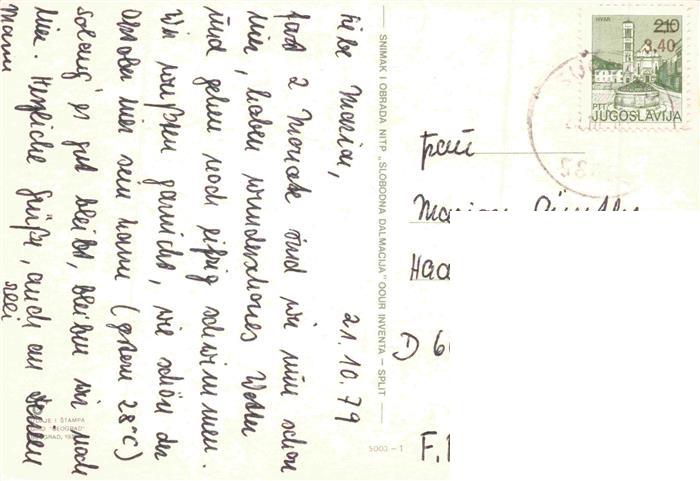 21.10.79
Liebe Marion,
fast 2 Monate sind wir nun schon
hier, haben wunderschönes Wetter
und gehen noch eifrig schwimmen.
Wir wußten garnicht, wie schön der
Oktober hier sein kann (gestern 28°C)
solang's gut bleibt, bleiben wir noch
hier. Herzliche Grüße, auch an Deinen
Mann
SNIMAK I OBRADA NITP „SLOBODNA DALMACIJA" OOUR INVENTA – SPLIT
I ŠTAMPA
"BEOGRAD"
5000 – 1
HVAR
2.10
3.40
PTT
JUGOSLAVIJA
Frau
Marion
Haa
D 6
F.